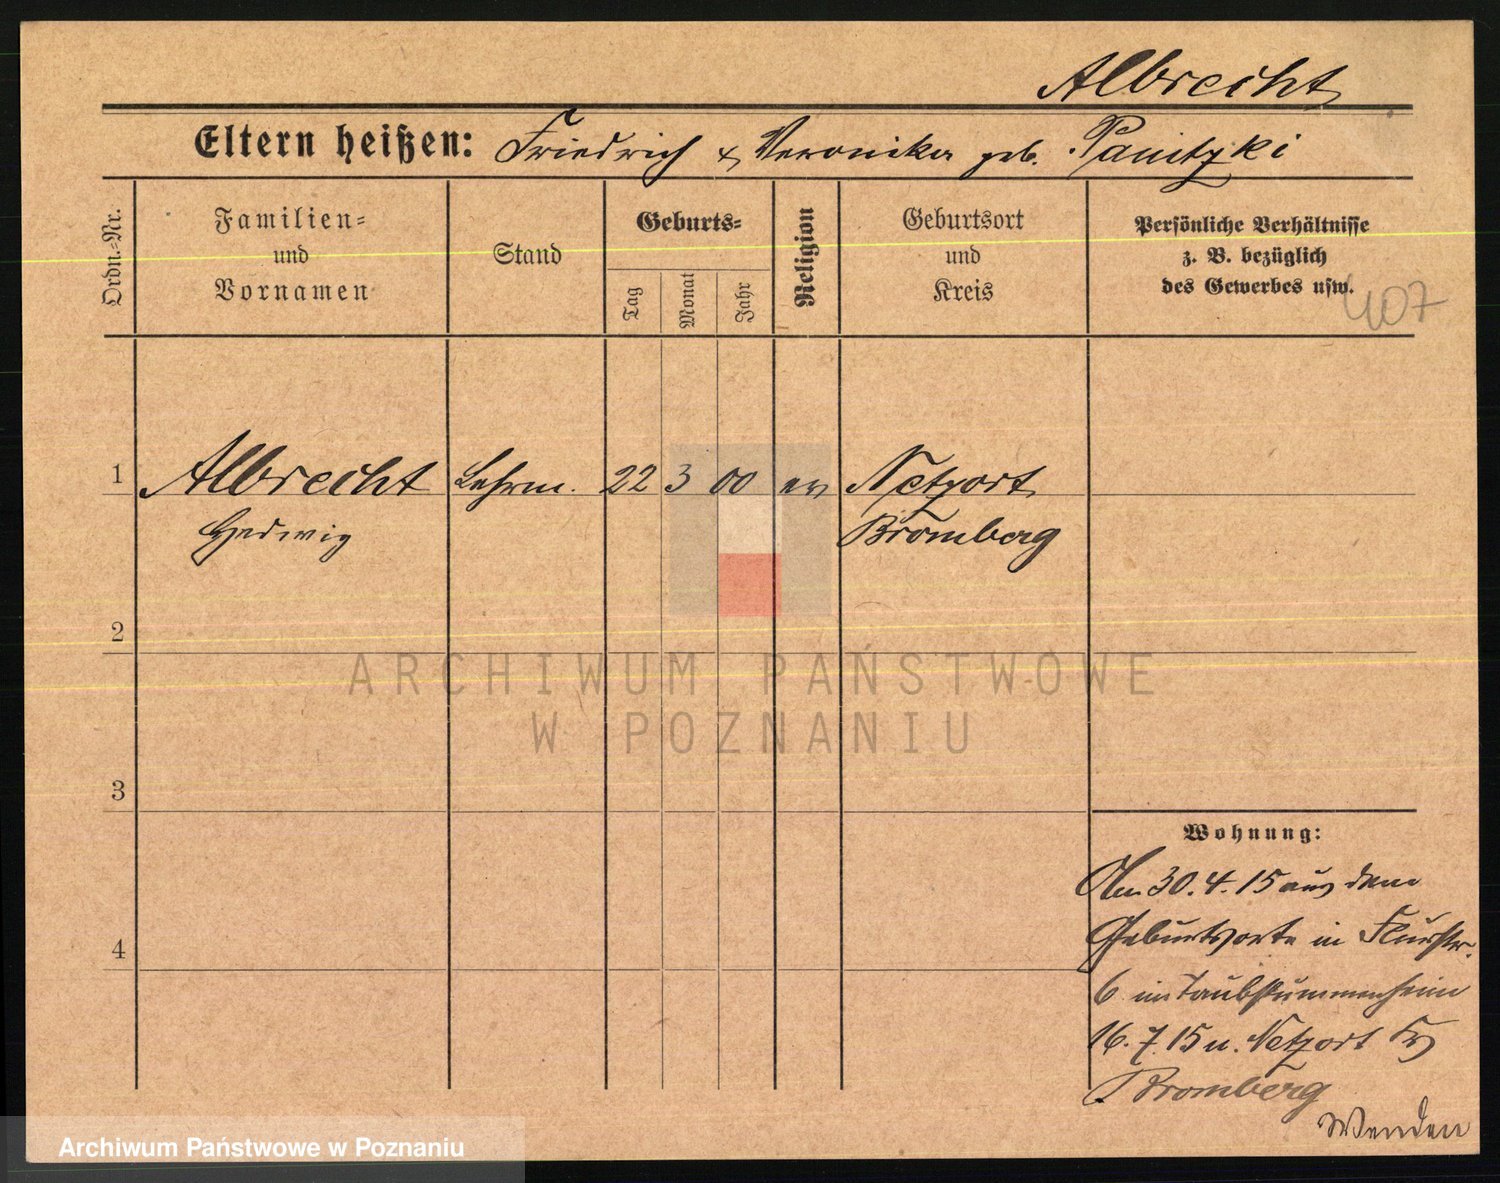 Albrecht
Eltern heißen: Friedrich & Veronika geb. Panitzki
Ordn.-Nr.
Familien-
und
Vornamen
Stand
Geburts-
Tag
Monat
Jahr
Religion
Geburtsort
und
Kreis
Persönliche Verhältnisse
z. B. bezüglich
des Gewerbes usw.
407
1 Albrecht 22 3 00 ev Netzort
Hedwig Bromberg
2
3
4
Wohnung:
Am 30.4.15 aus dem
Geburtsorte in Flurstr.
6 im Taubstummenheim
16.7.15 n. Netzort Kr
Bromberg
Wenden
ARCHIWUM PAŃSTWOWE
W POZNANIU
Archiwum Państwowe w Poznaniu